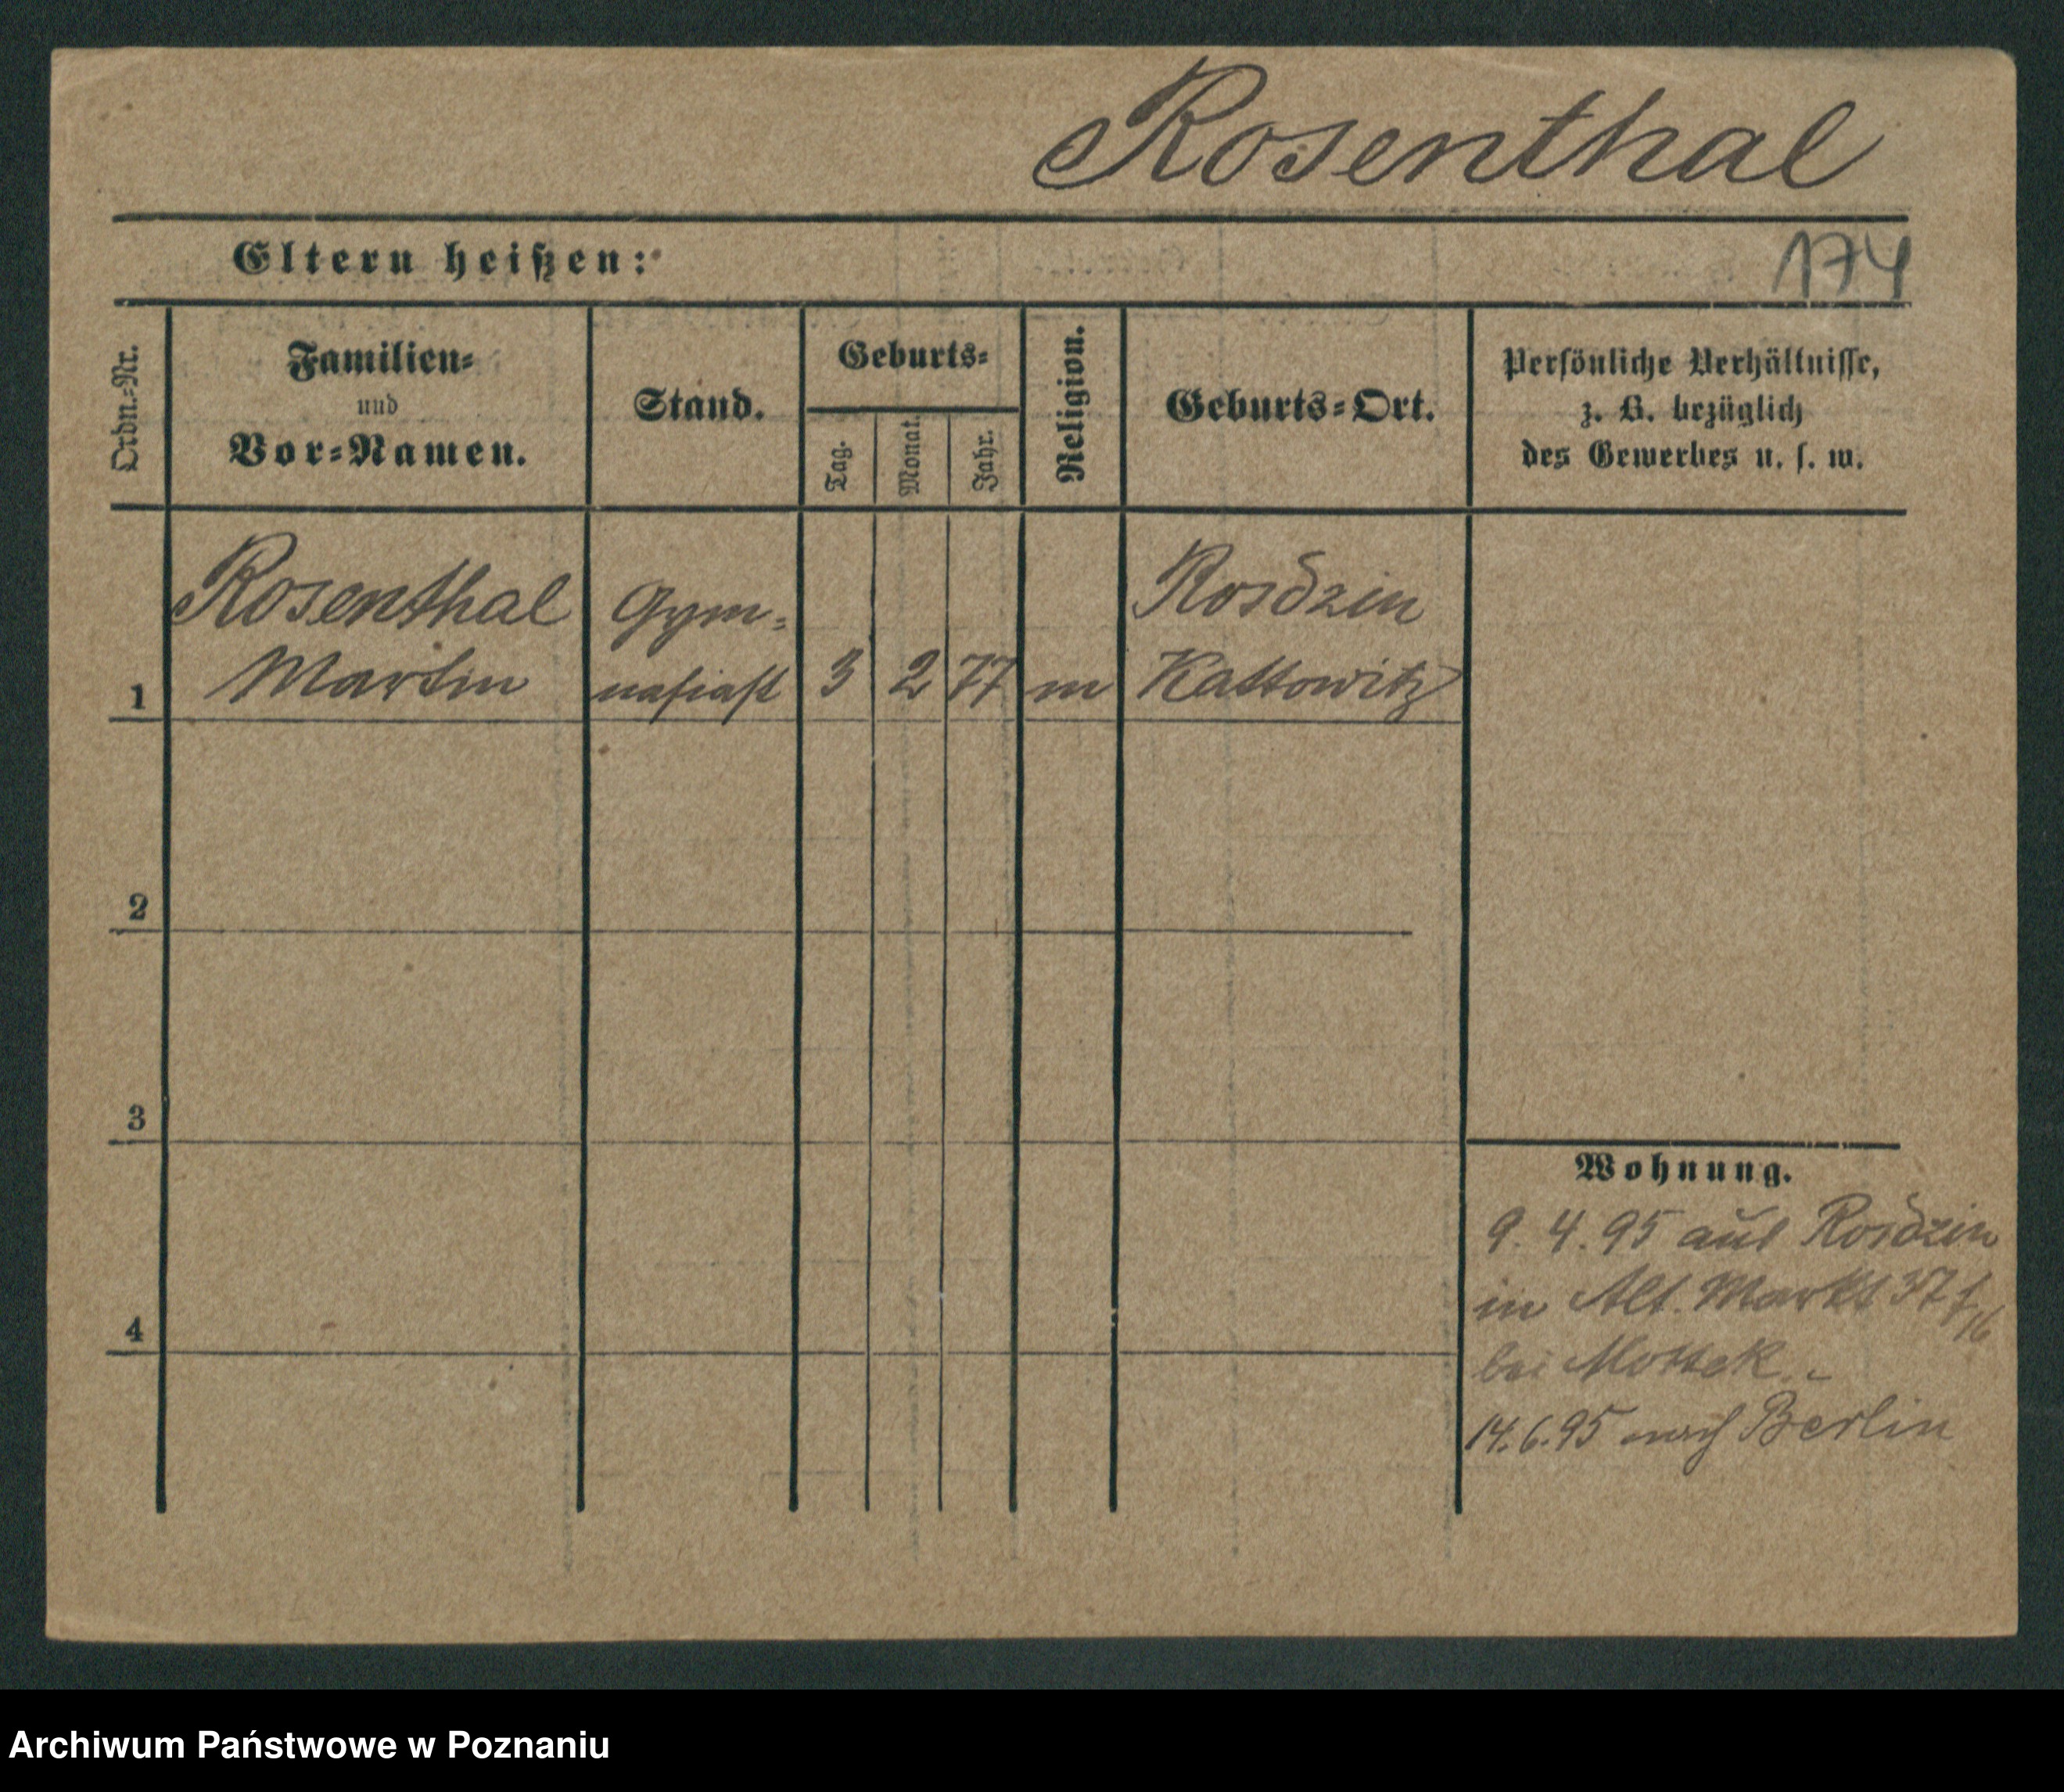 Rosenthal
Eltern heißen:
174
Ordn.-Nr.
Familien-
und
Vor-Namen.
Stand.
Geburts-
Tag.
Monat.
Jahr.
Religion.
Geburts-Ort.
Persönliche Verhältnisse,
z. B. bezüglich
des Gewerbes u. s. w.
Rosenthal Gym- Rosdzin
1 Martin nasiast 3 2 77 m Kattowitz
2
3
4
Wohnung.
9. 4. 95 aus Rosdzin
in Alt. Markt 37
bei Mottek
14.6.95 nach Berlin
Archiwum Państwowe w Poznaniu